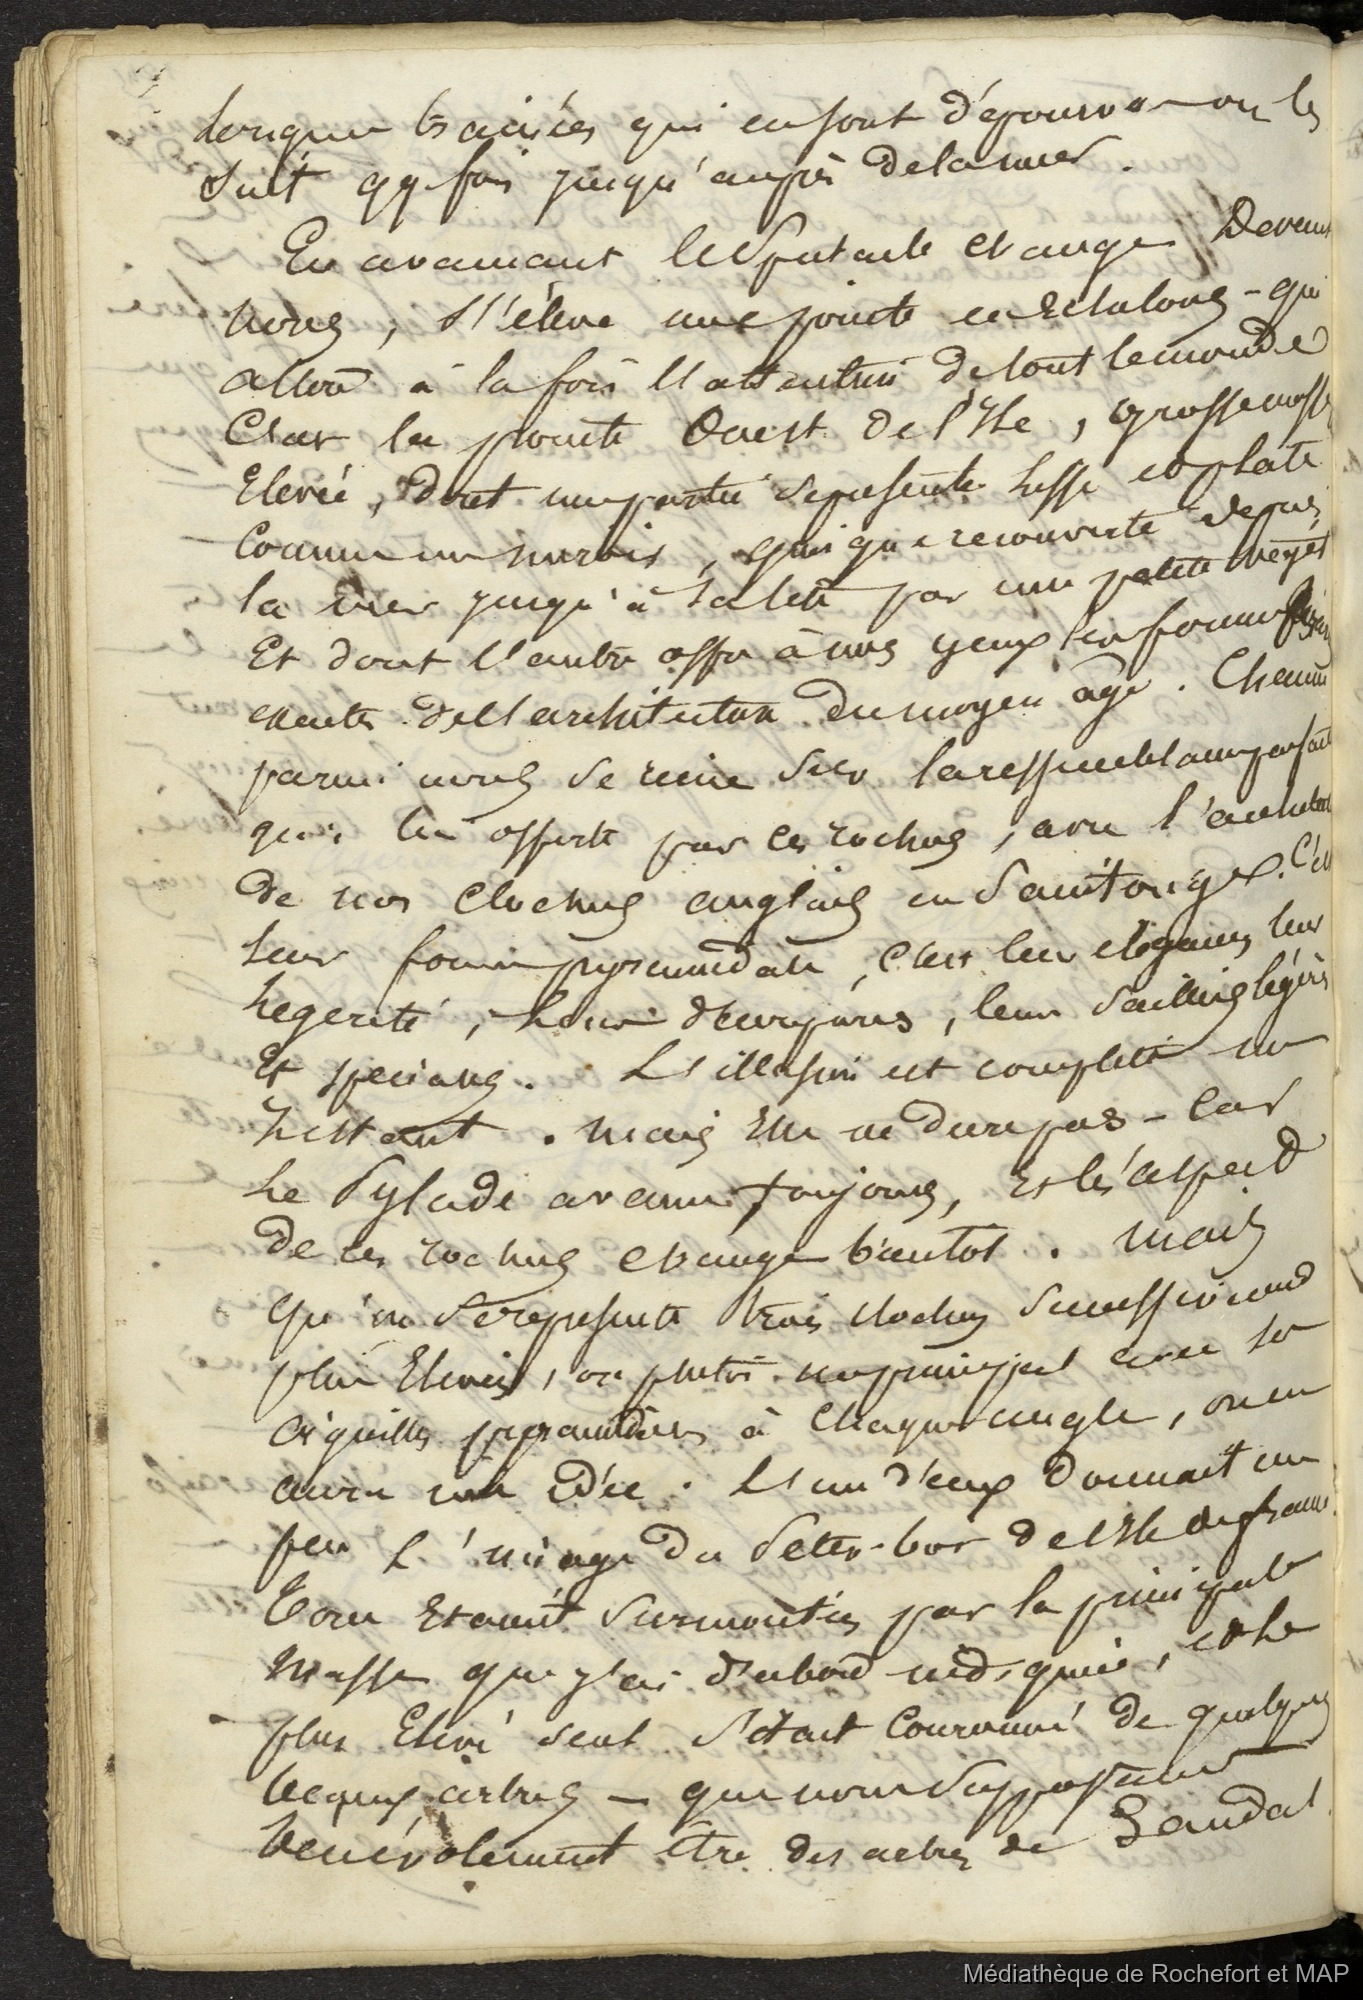 lorsque les acorées qui en sont dépourvu on les
suit qq fois jusqu'auprès de la mer.
En avancant le Spectacle change Devant
nous, s'élève une pointe en
attire à la fois l'attention de tout le monde
C'est la pointe Ouest de l'Ile, grosse masse
Elevée, dont une partie se presente lisse et plate
Comme un murois, quoique recouverte depuis
la mer jusqu'à sa tête par une petite végét
Et dont l'autre offre à nos yeux les formes
exacte de l'architecture du moyen age. Chacun
parmi nous se recrie sur la ressemblance parfaite
qui lui offerte par ces rochers, avec l'architect
de nos clochers anglais en Saintonge. C'est
leur forme pyramidale, C'est leur elegance, leur
legereté, leurs decoupures, leurs saillies légères
Et specieuses. L'illusion est complette un
Instant. mais Elle ne dure pas - Car
Le Pylade avance toujours, Et l'aspect
de ces rochers change bientot. mais
qu'on se represente trois clochers successivement
plus Elevés, ou plutot un principal avec ses
aiguilles pyramidales à chaque angle, on en
aura une Idée. L'un d'eux donnait un
peu l'image du Peter-bot de l'Ile de france
Tous Etaient surmontés par la principale
Masse que j'ai d'abord indiquée, et le
plus Elevé seul s'était Couronné de quelques
beaux arbres — que nous supposames
bénévolement être des arbres de Sandal.
Médiathèque de Rochefort et MAP